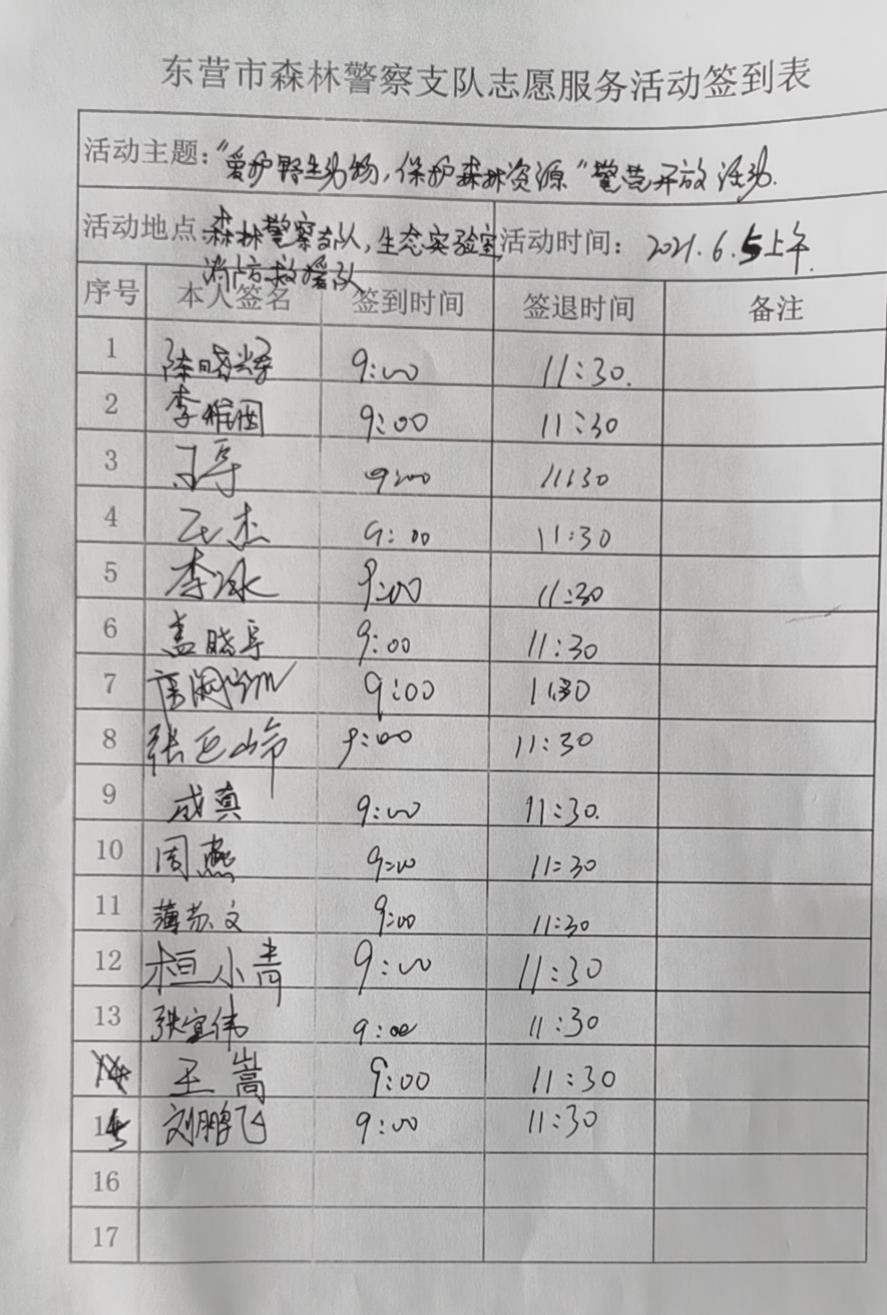 东营市森林警察支队志愿服务活动签到表
活动主题:“爱护野生动物,保护森林资源”警营开放活动.
活动地点 森林警察支队,生态实验室 活动时间: 2021.6.5上午.
消防救援队
序号 本人签名 签到时间 签退时间 备注
1 陈晓 9:00 11:30.
2 李雅 9:00 11:30
3 9:00 11:30
4 王杰 9:00 11:30
5 李冰 9:00 11:30
6 孟晓 9:00 11:30
7 9:00 11:30
8 张 9:00 11:30
9 成真 9:00 11:30.
10 周燕 9:00 11:30
11 薄苏文 9:00 11:30
12 桓小青 9:00 11:30
13 张宜伟 9:00 11:30
14 王嵩 9:00 11:30
15 刘鹏飞 9:00 11:30
16
17